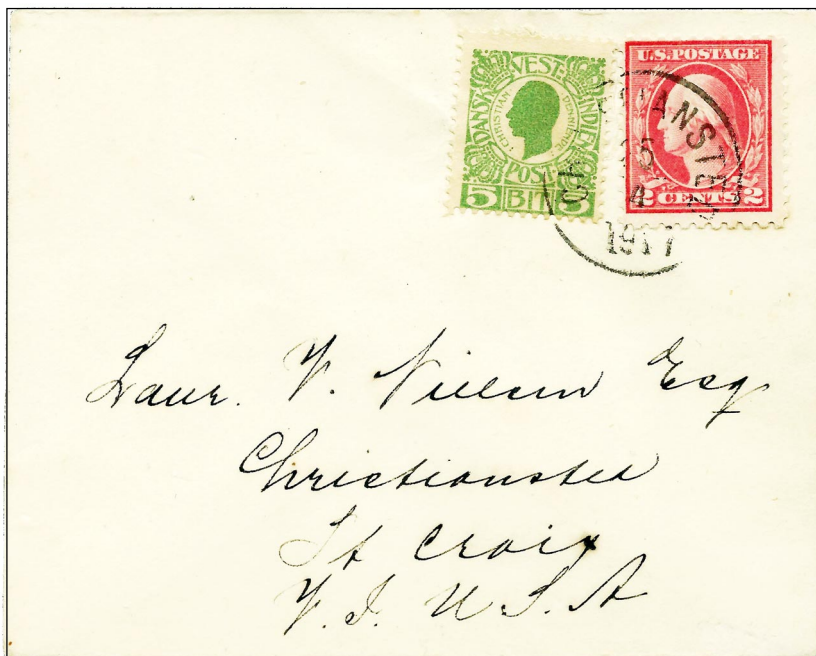 DANSK VEST: INDIEN
CHRISTIAN
POST
5 BIT 5
U.S. POSTAGE
2 CENTS 2
1917
Laur. V. Nielsen Esq
Christiansted
St Croix
V.I. U.S.A